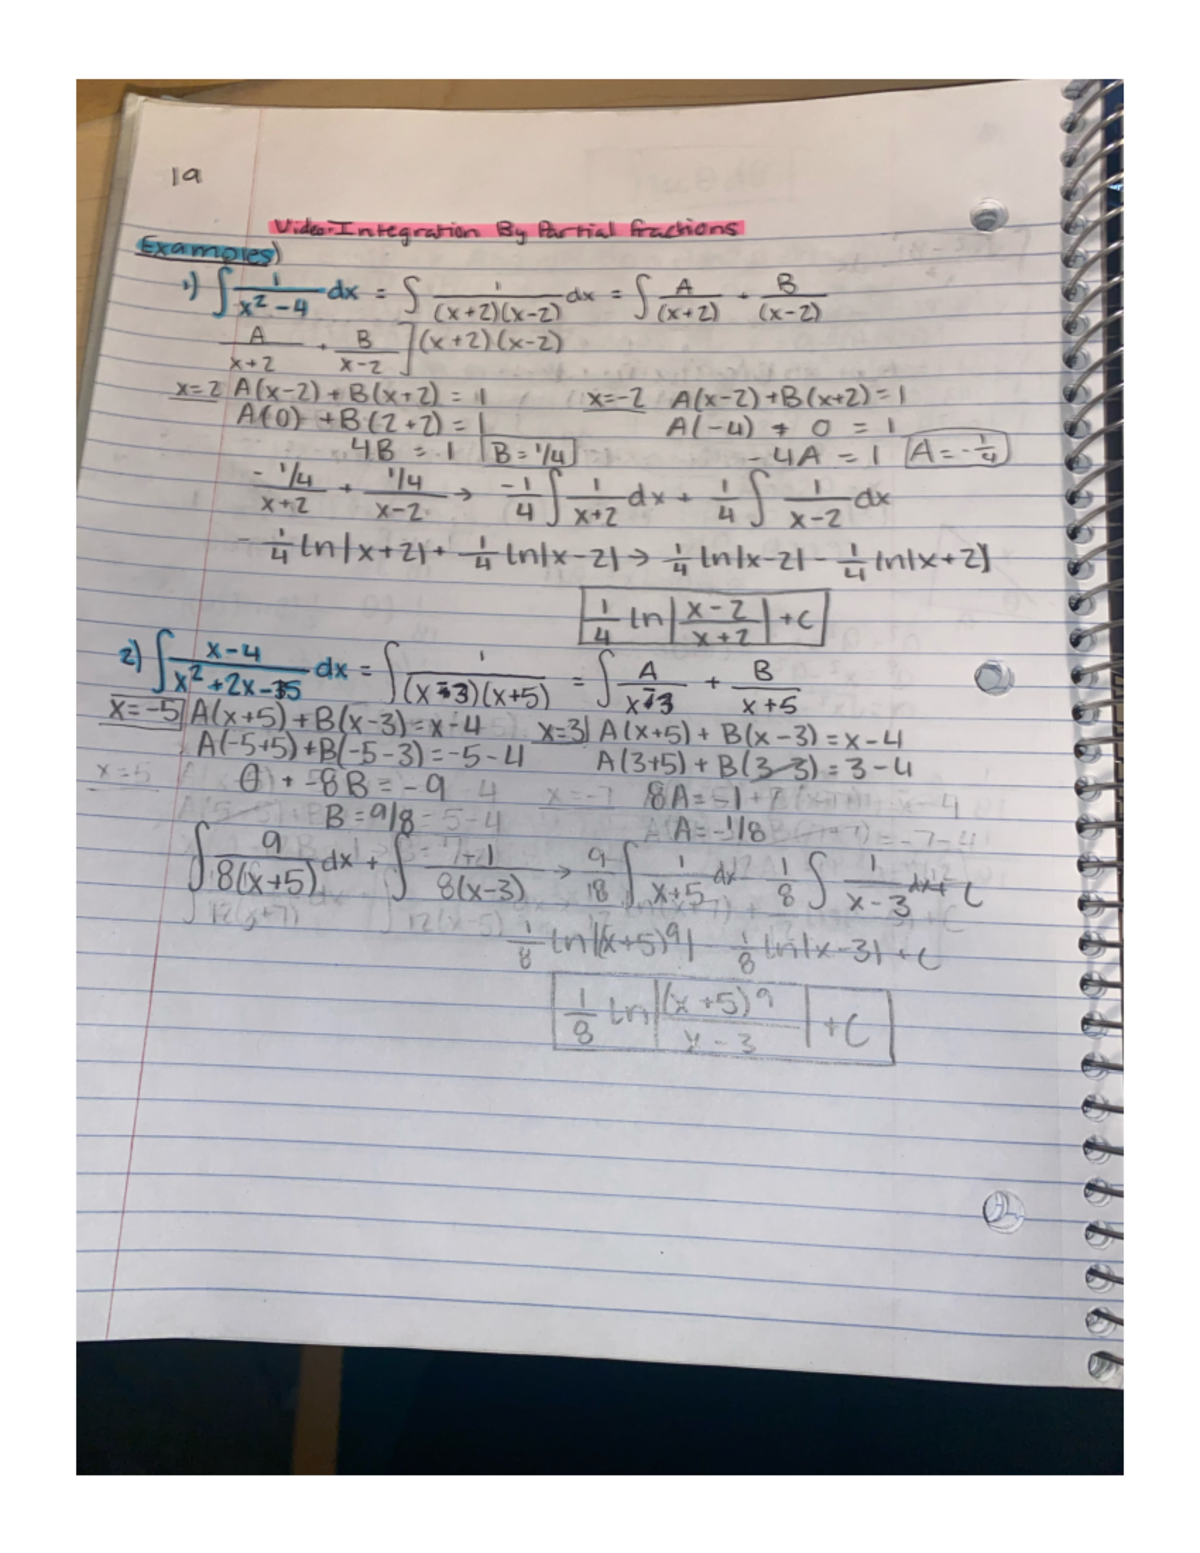 19
Video: Integration By Partial fractions
Examples)
1) ∫ 1/(x²-4) dx = ∫ 1/((x+2)(x-2)) dx = ∫ A/(x+2) + B/(x-2)
A/(x+2) + B/(x-2) ] (x+2)(x-2)
x=2 A(x-2)+B(x+2) = 1 x=-2 A(x-2)+B(x+2)=1
A(0) +B(2+2) = 1 A(-4) + 0 = 1
4B = 1 B=1/4 -4A = 1 A=-1/4
-1/4/(x+2) + 1/4/(x-2) → -1/4 ∫ 1/(x+2) dx + 1/4 ∫ 1/(x-2) dx
-1/4 ln|x+2| + 1/4 ln|x-2| → 1/4 ln|x-2| - 1/4 ln|x+2|
1/4 ln |(x-2)/(x+2)| +C
2) ∫ (x-4)/(x²+2x-15) dx = ∫ 1/((x-3)(x+5)) = ∫ A/(x-3) + B/(x+5)
x=-5 A(x+5)+B(x-3)=x-4 x=3 A(x+5)+B(x-3)=x-4
A(-5+5)+B(-5-3)=-5-4 A(3+5)+B(3-3)=3-4
0 + -8B = -9 8A=-1
B=9/8 A=-1/8
∫ 9/(8(x+5)) dx + ∫ -1/(8(x-3)) → 9/18 ∫ 1/(x+5) dx - 1/8 ∫ 1/(x-3) dx + C
1/8 ln|(x+5)⁹| - 1/8 ln|x-3| + C
1/8 ln |(x+5)⁹/(x-3)| +C